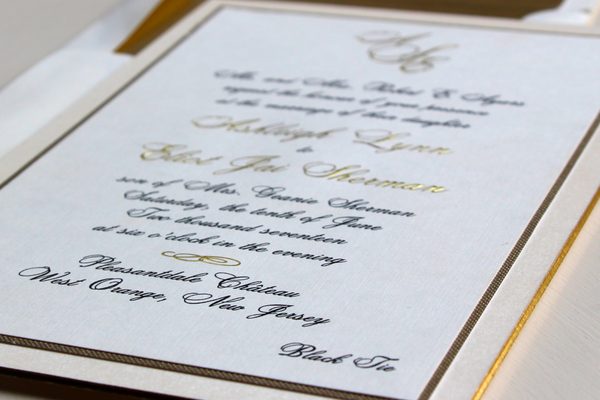 Mr. and Mrs. Robert
request the honour of your presence
at the marriage of their daughter
Ashleigh Lynn
to
Eliot Jai Sherman
son of Mrs. Sherman
Saturday, the tenth of June
Two thousand seventeen
at six o'clock in the evening
Pleasantdale Château
West Orange, New Jersey
Black Tie